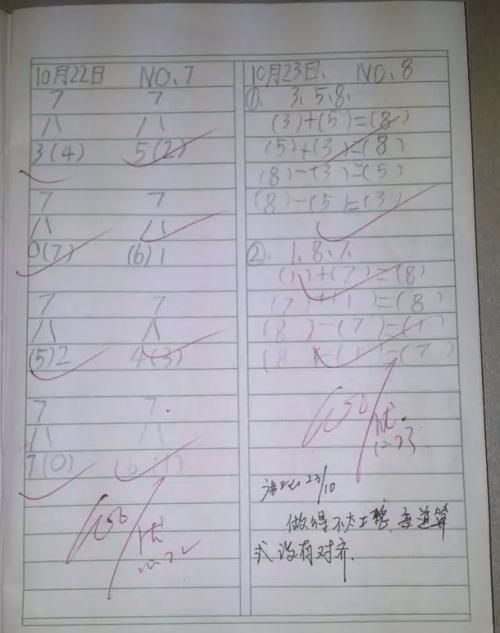 10月22日 NO、7
7 7
八 八
3(4) 5(2)
7 7
八 八
0(7) (6)1
7 7
八 八
(5)2 4(3)
7 7
八 八
7(0) 6(1)
优
10.22
10月23日、 NO、8
①、 3、5、8、
(3)+(5)=(8)
(5)+(3)=(8)
(8)-(3)=(5)
(8)-(5)=(3)
②、 1、8、7、
(1)+(7)=(8)
(7)+(1)=(8)
(8)-(7)=(1)
(8)-(1)=(7)
优.
10.23
23/10
做得不大工整,每道算
式没有对齐.